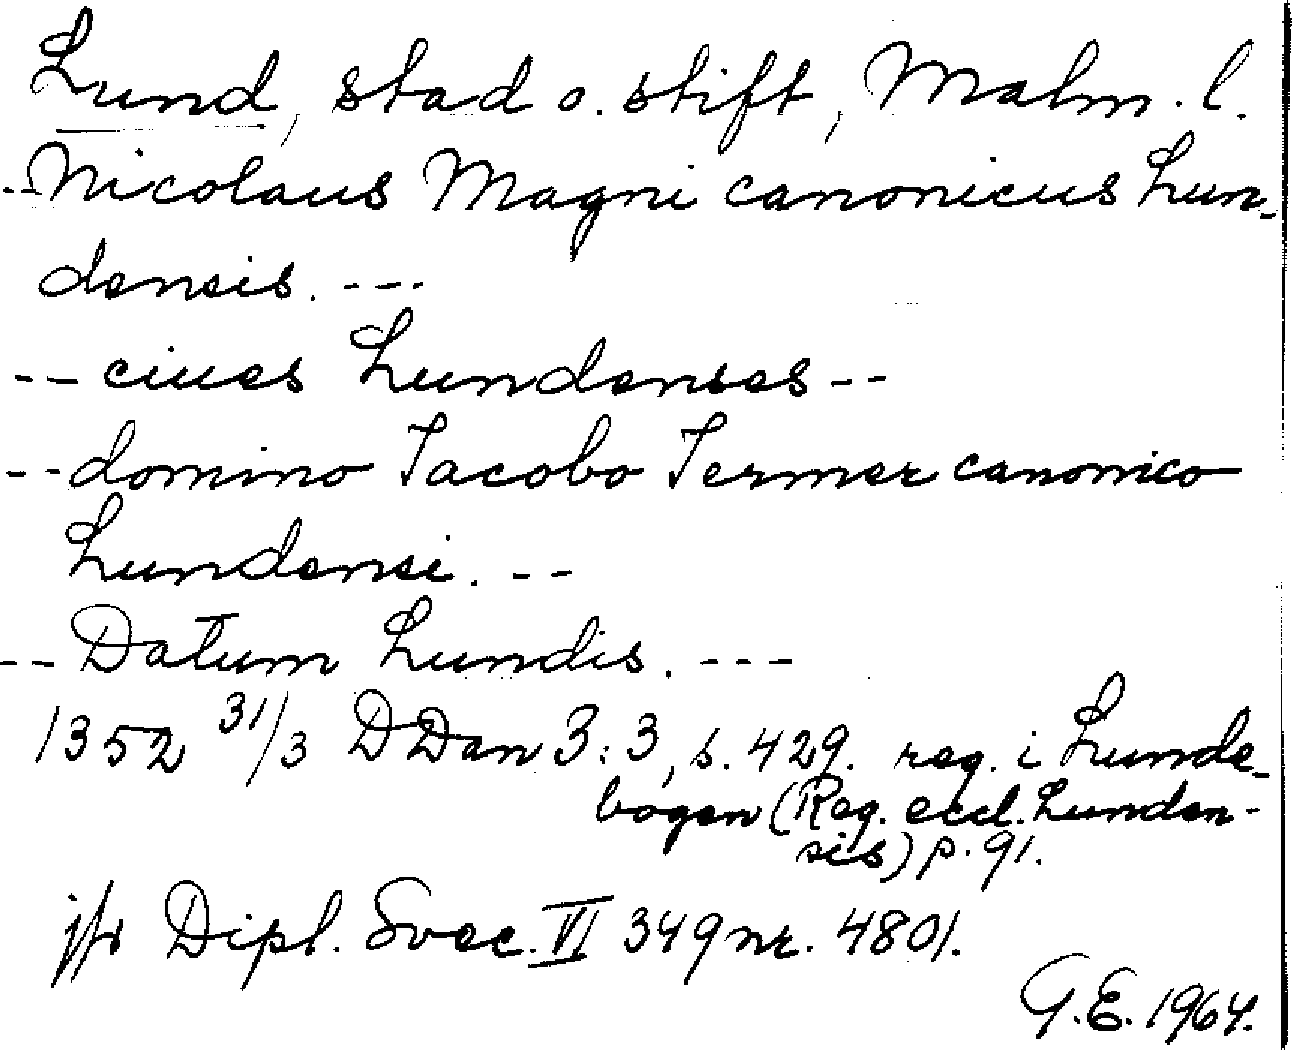 Lund, stad o. stift, Malm. l.
--Nicolaus Magni canonicus Lun-
densis. ---
-- ciues Lundenses --
--domino Iacobo Iermer canonico
Lundensi. --
--Datum Lundis. ---
1352 31/3 DDan 3:3, s. 429. reg. i Lunde-
bogen (Reg. eccl. Lunden-
sis) p. 91.
jfr Dipl. Svec. VI 349 nr. 4801.
G.E. 1964.